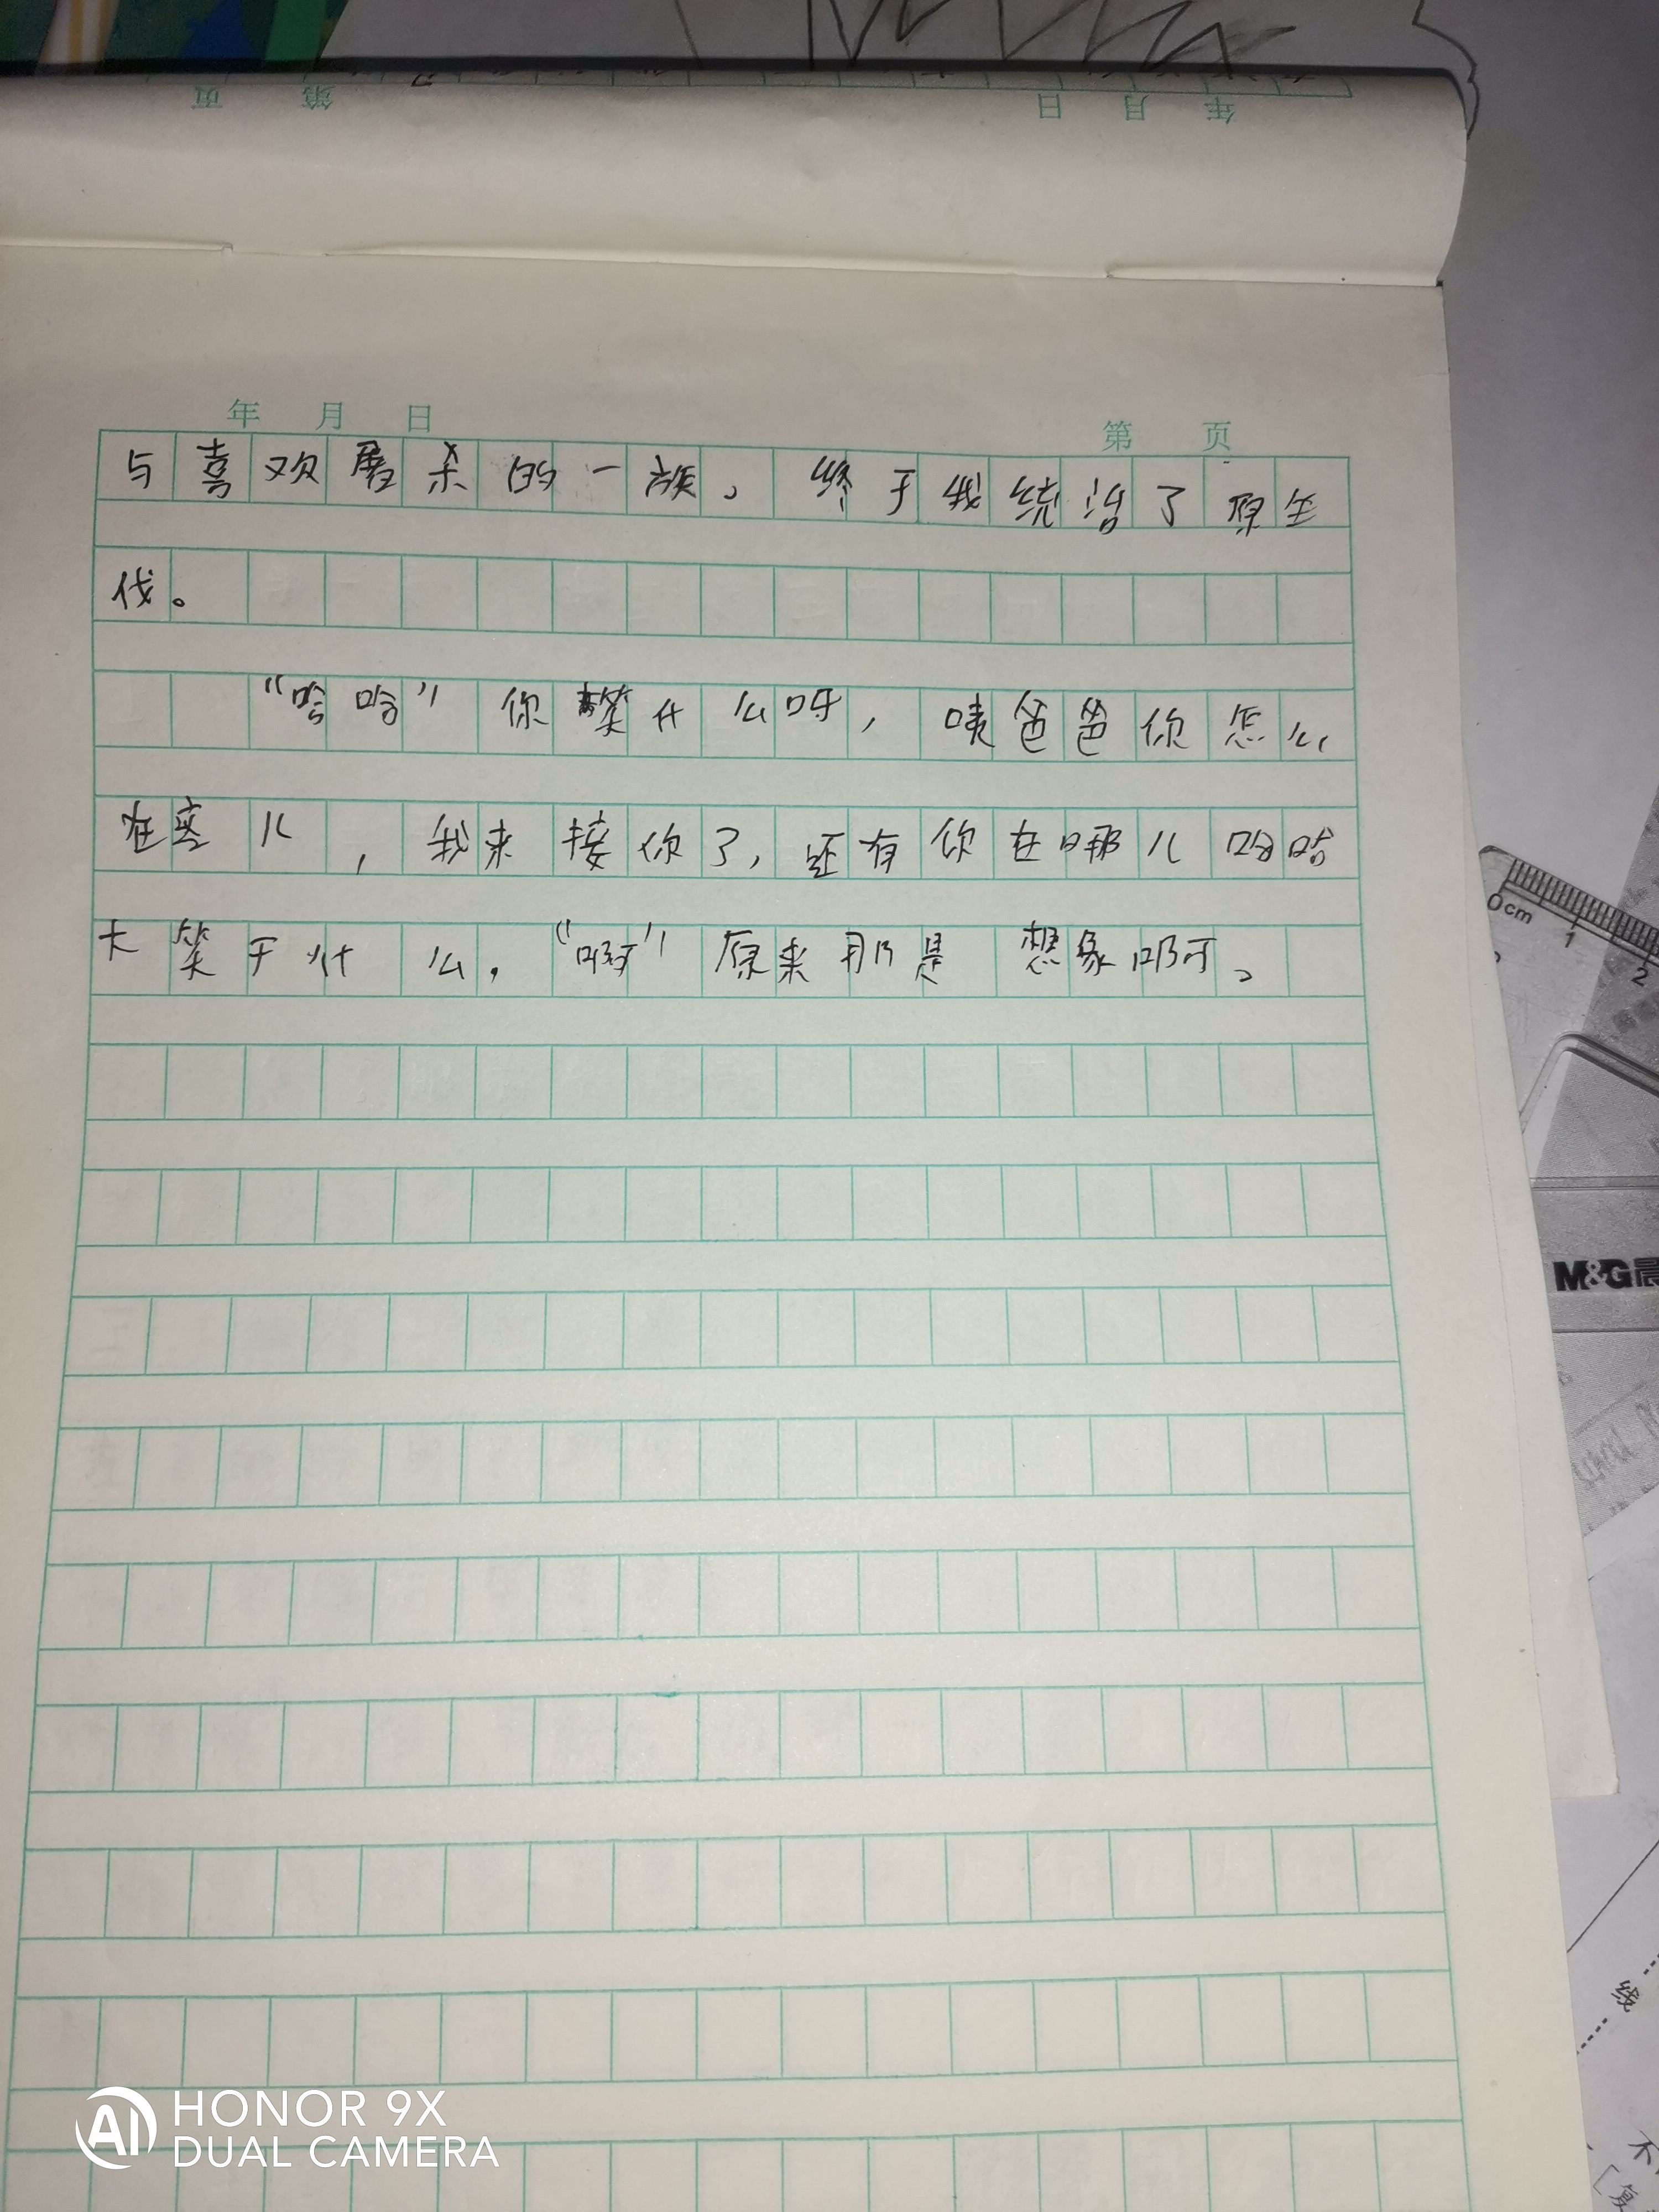 页 第 日 月 年
年 月 日 第 页
与喜欢屠杀的一族，终于我统治了原生
代。
“哈哈”你笑什么呀，咦爸爸你怎么
在这儿，我来接你了，还有你在哪儿哈哈
大笑干什么，“啊”原来那是想象啊。
0cm 1 2
M&G晨
线
不
［复
HONOR 9X
DUAL CAMERA
AI